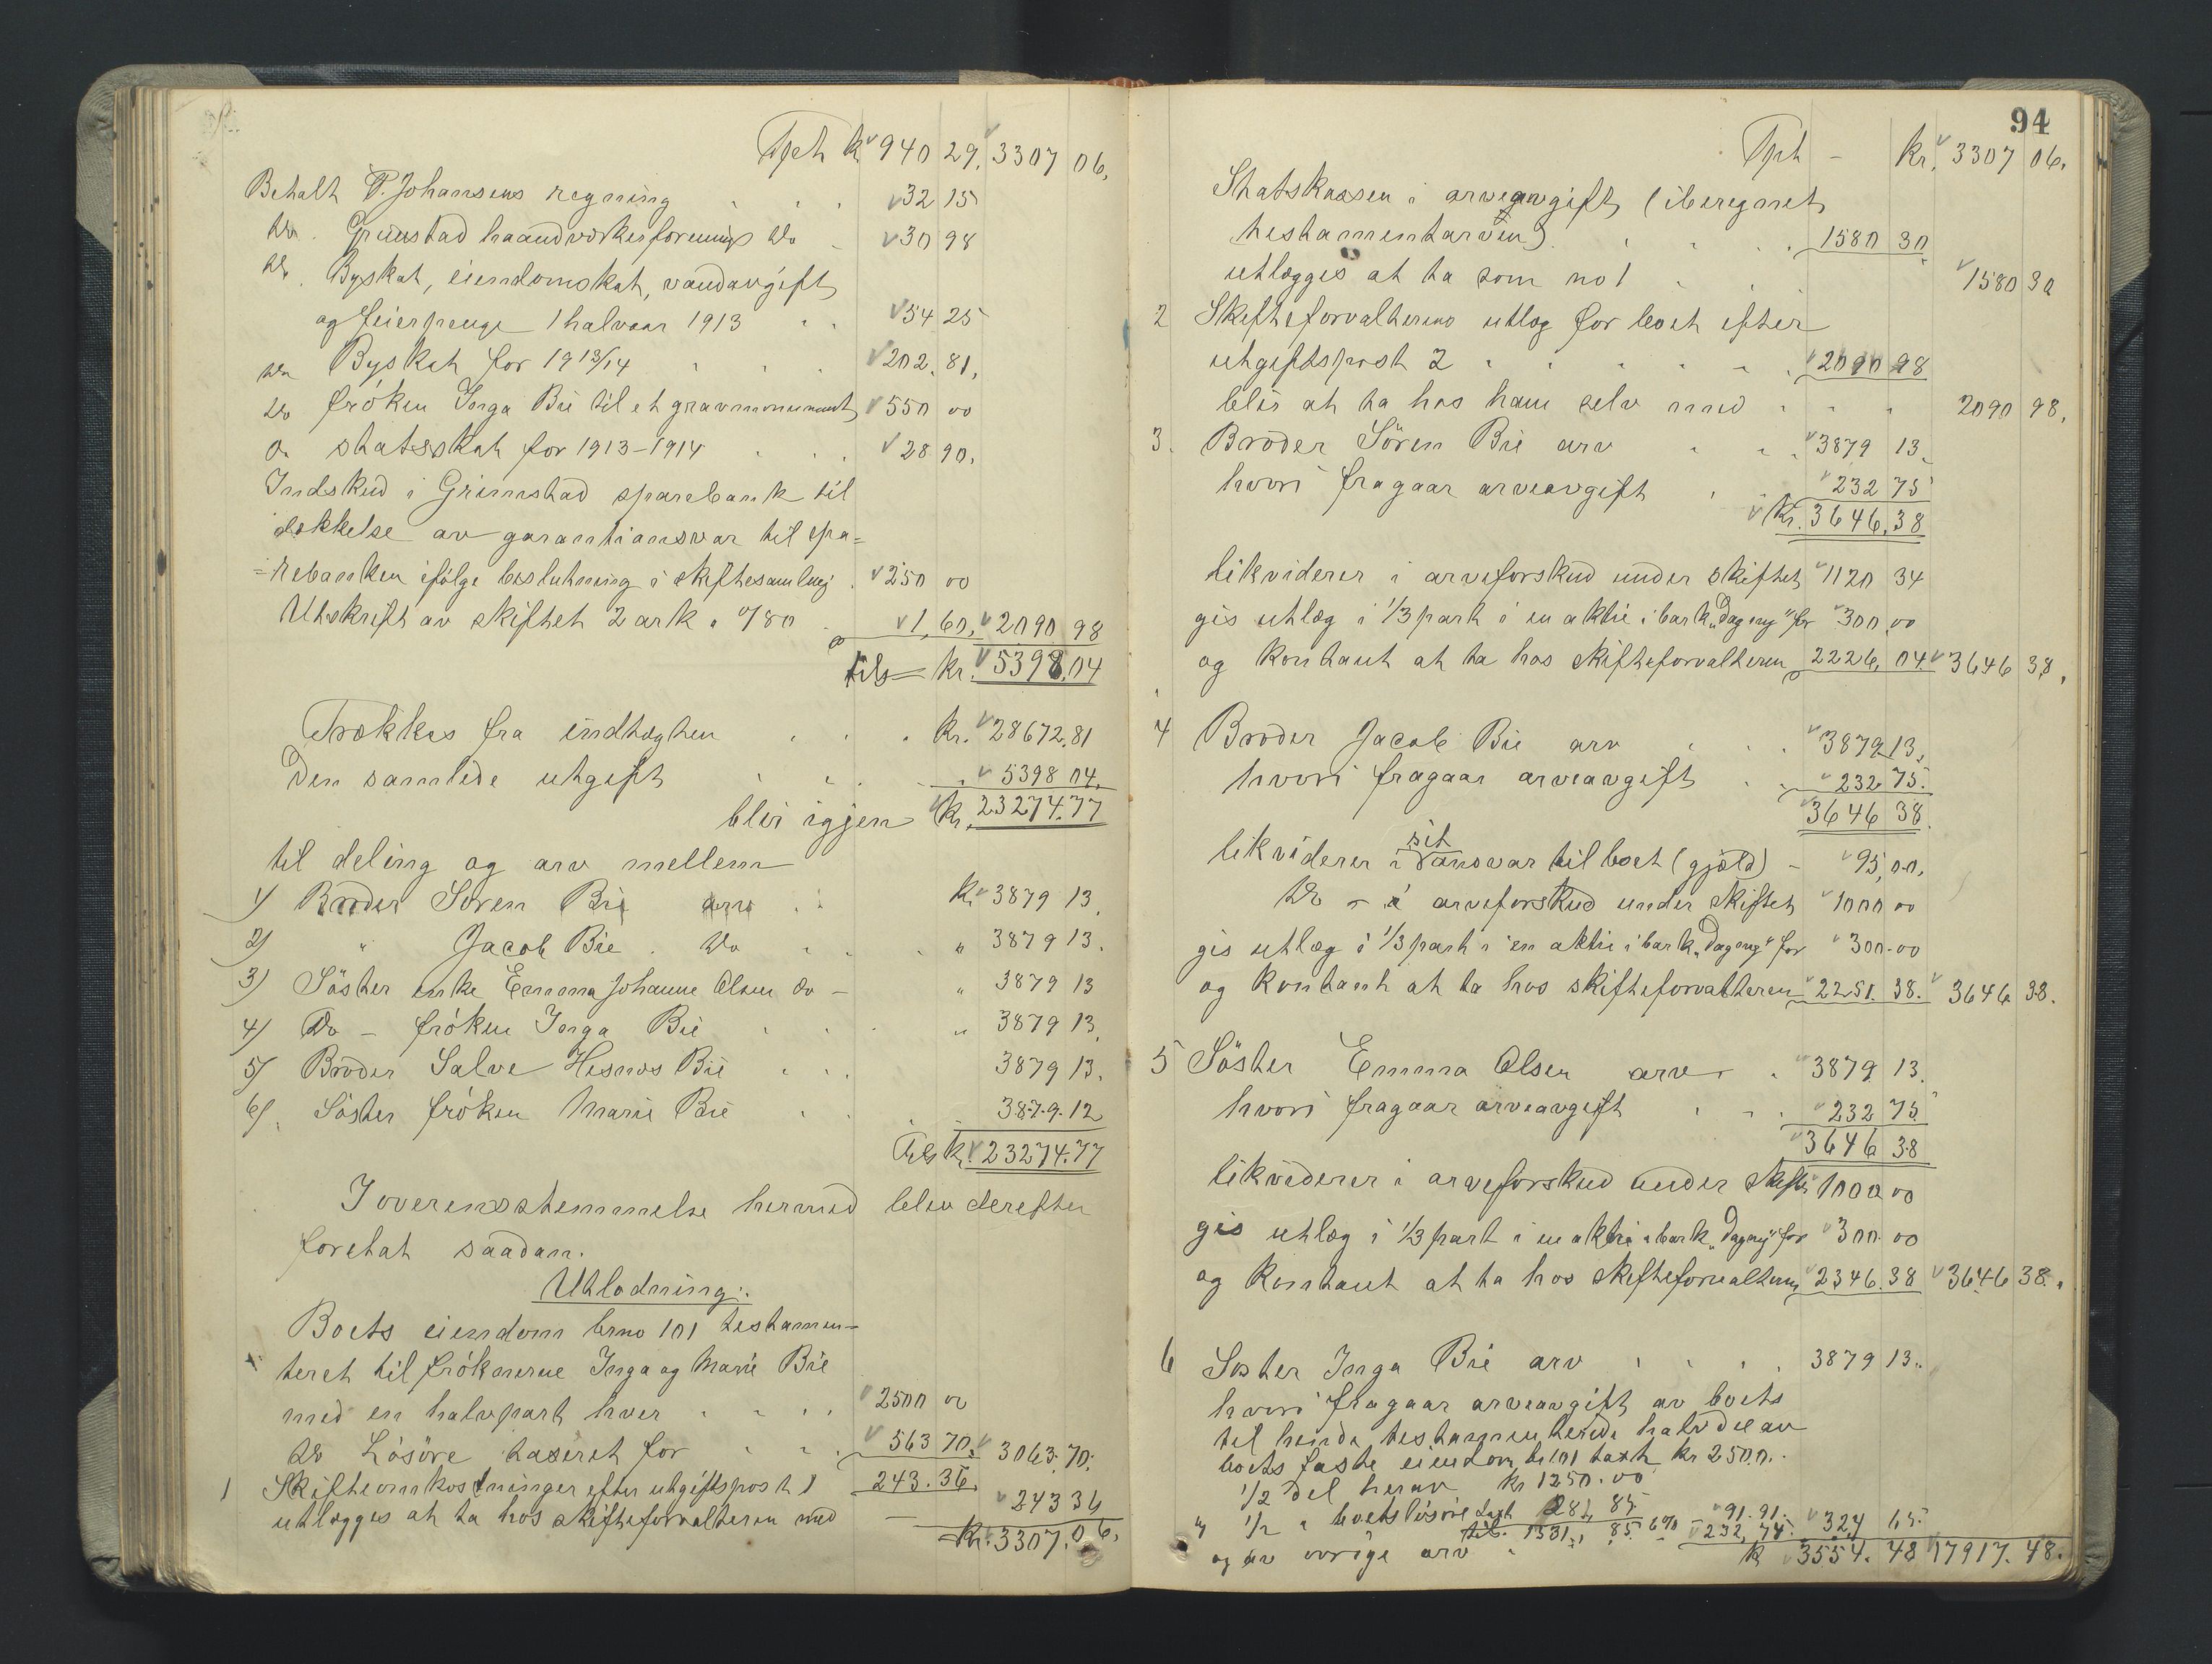 Tpt kr 940 29. 3307 06.
Betalt P. Johansens regning 32 15
do. Grimstad haandværkerforenings do 30 98
do. Byskat, eiendomskat, vandavgift
og feierpenge 1 halvaar 1913 54 25
do Byskat for 1913/14 202. 81.
do fröken Inga Bie til et gravmonument 550 00
do statsskat for 1913-1914 28 90.
Indskud i Grimstad sparebank til
dækkelse av garantiansvar til spa=
=rebanken ifölge beslutning i skiftesamling 250 00
Utskrift av skiftet 2 ark a 0/80 1,60. 2090 98
tils kr. 5398.04
Trækkes fra indtægten kr. 28672.81
den samlede utgift 5398 04.
blir igjen kr. 23274.77
til deling og arv mellem
1) Broder Sören Bie arv kr 3879 13.
2) " Jacob Bie. do " 3879 13.
3) Söster enke Emma Johanne Olsen do - " 3879 13
4) Do - fröken Inga Bie " 3879 13.
5) Broder Salve Hesnes Bie 3879 13.
6) Söster fröken Marie Bie 3879.12
Tils kr. 23274.77
I overensstemmelse hermed blev derefter
foretat saadan.
Utlodning:
Boets eiendom brno 101 testamen-
teret til fröknerne Inga og Marie Bie
med en halvpart hver 2500 00
do Lösöre taxeret for 563 70. 3063.70.
1 Skifteomkostninger efter utgiftspost 1 243.36.
utlægges at ta hos skifteforvalteren med 243 36
Kr. 3307.06.
94
Tpt - kr. 3307 06.
Statskassen i arveavgift (iberegnet
testamentarven) 1580 30.
utlægges at ta som no 1 1580 30
2 Skifteforvalterens utlæg for boet efter
utgiftspost 2 2090 98
blir at ta hos ham selv med 2090 98.
3. Broder Sören Bie arv 3879 13.
hvori fragaar arveavgift 232 75
Kr. 3646.38
likviderer i arveforskud under skiftet 1120 34
gis utlæg i 1/3 part i en aktie i bark "Dagny" for 300.00
og kontant at ta hos skifteforvalteren 2226. 04. 3646 38.
4 Broder Jacob Bie arv 3879 13.
hvori fragaar arveavgift 232 75.
3646 38.
likviderer i sit ansvar til boet (gjæld) - 95,00.
do - i arveforskud under skiftet 1000 00
gis utlæg i 1/3 part i en aktie i bark "Dagny" for 300.00
og kontant at ta hos skifteforvalteren 2251. 38. 3646 38.
5 Söster Emma Olsen arv 3879 13.
hvori fragaar arveavgift 232 75
3646 38
likviderer i arveforskud under skiftet 1000 00
gis utlæg i 1/3 part i en aktie i bark "Dagny" for 300.00
og kontant at ta hos skifteforvalteren 2346.38 3646 38.
6 Söster Inga Bie arv 3879 13.
hvori fragaar arveavgift av boets
til hende testamenterede halvdel av
boets faste eiendom br 101 taxt kr 2500.
1/2 del herav kr 1250.00
" 1/2 " boets lösöre taxt 281, 85
til. 1531., 85. 6% 91.91.
og av övrige arv 232, 74. 324 65.
kr 3554. 48 17917. 48.